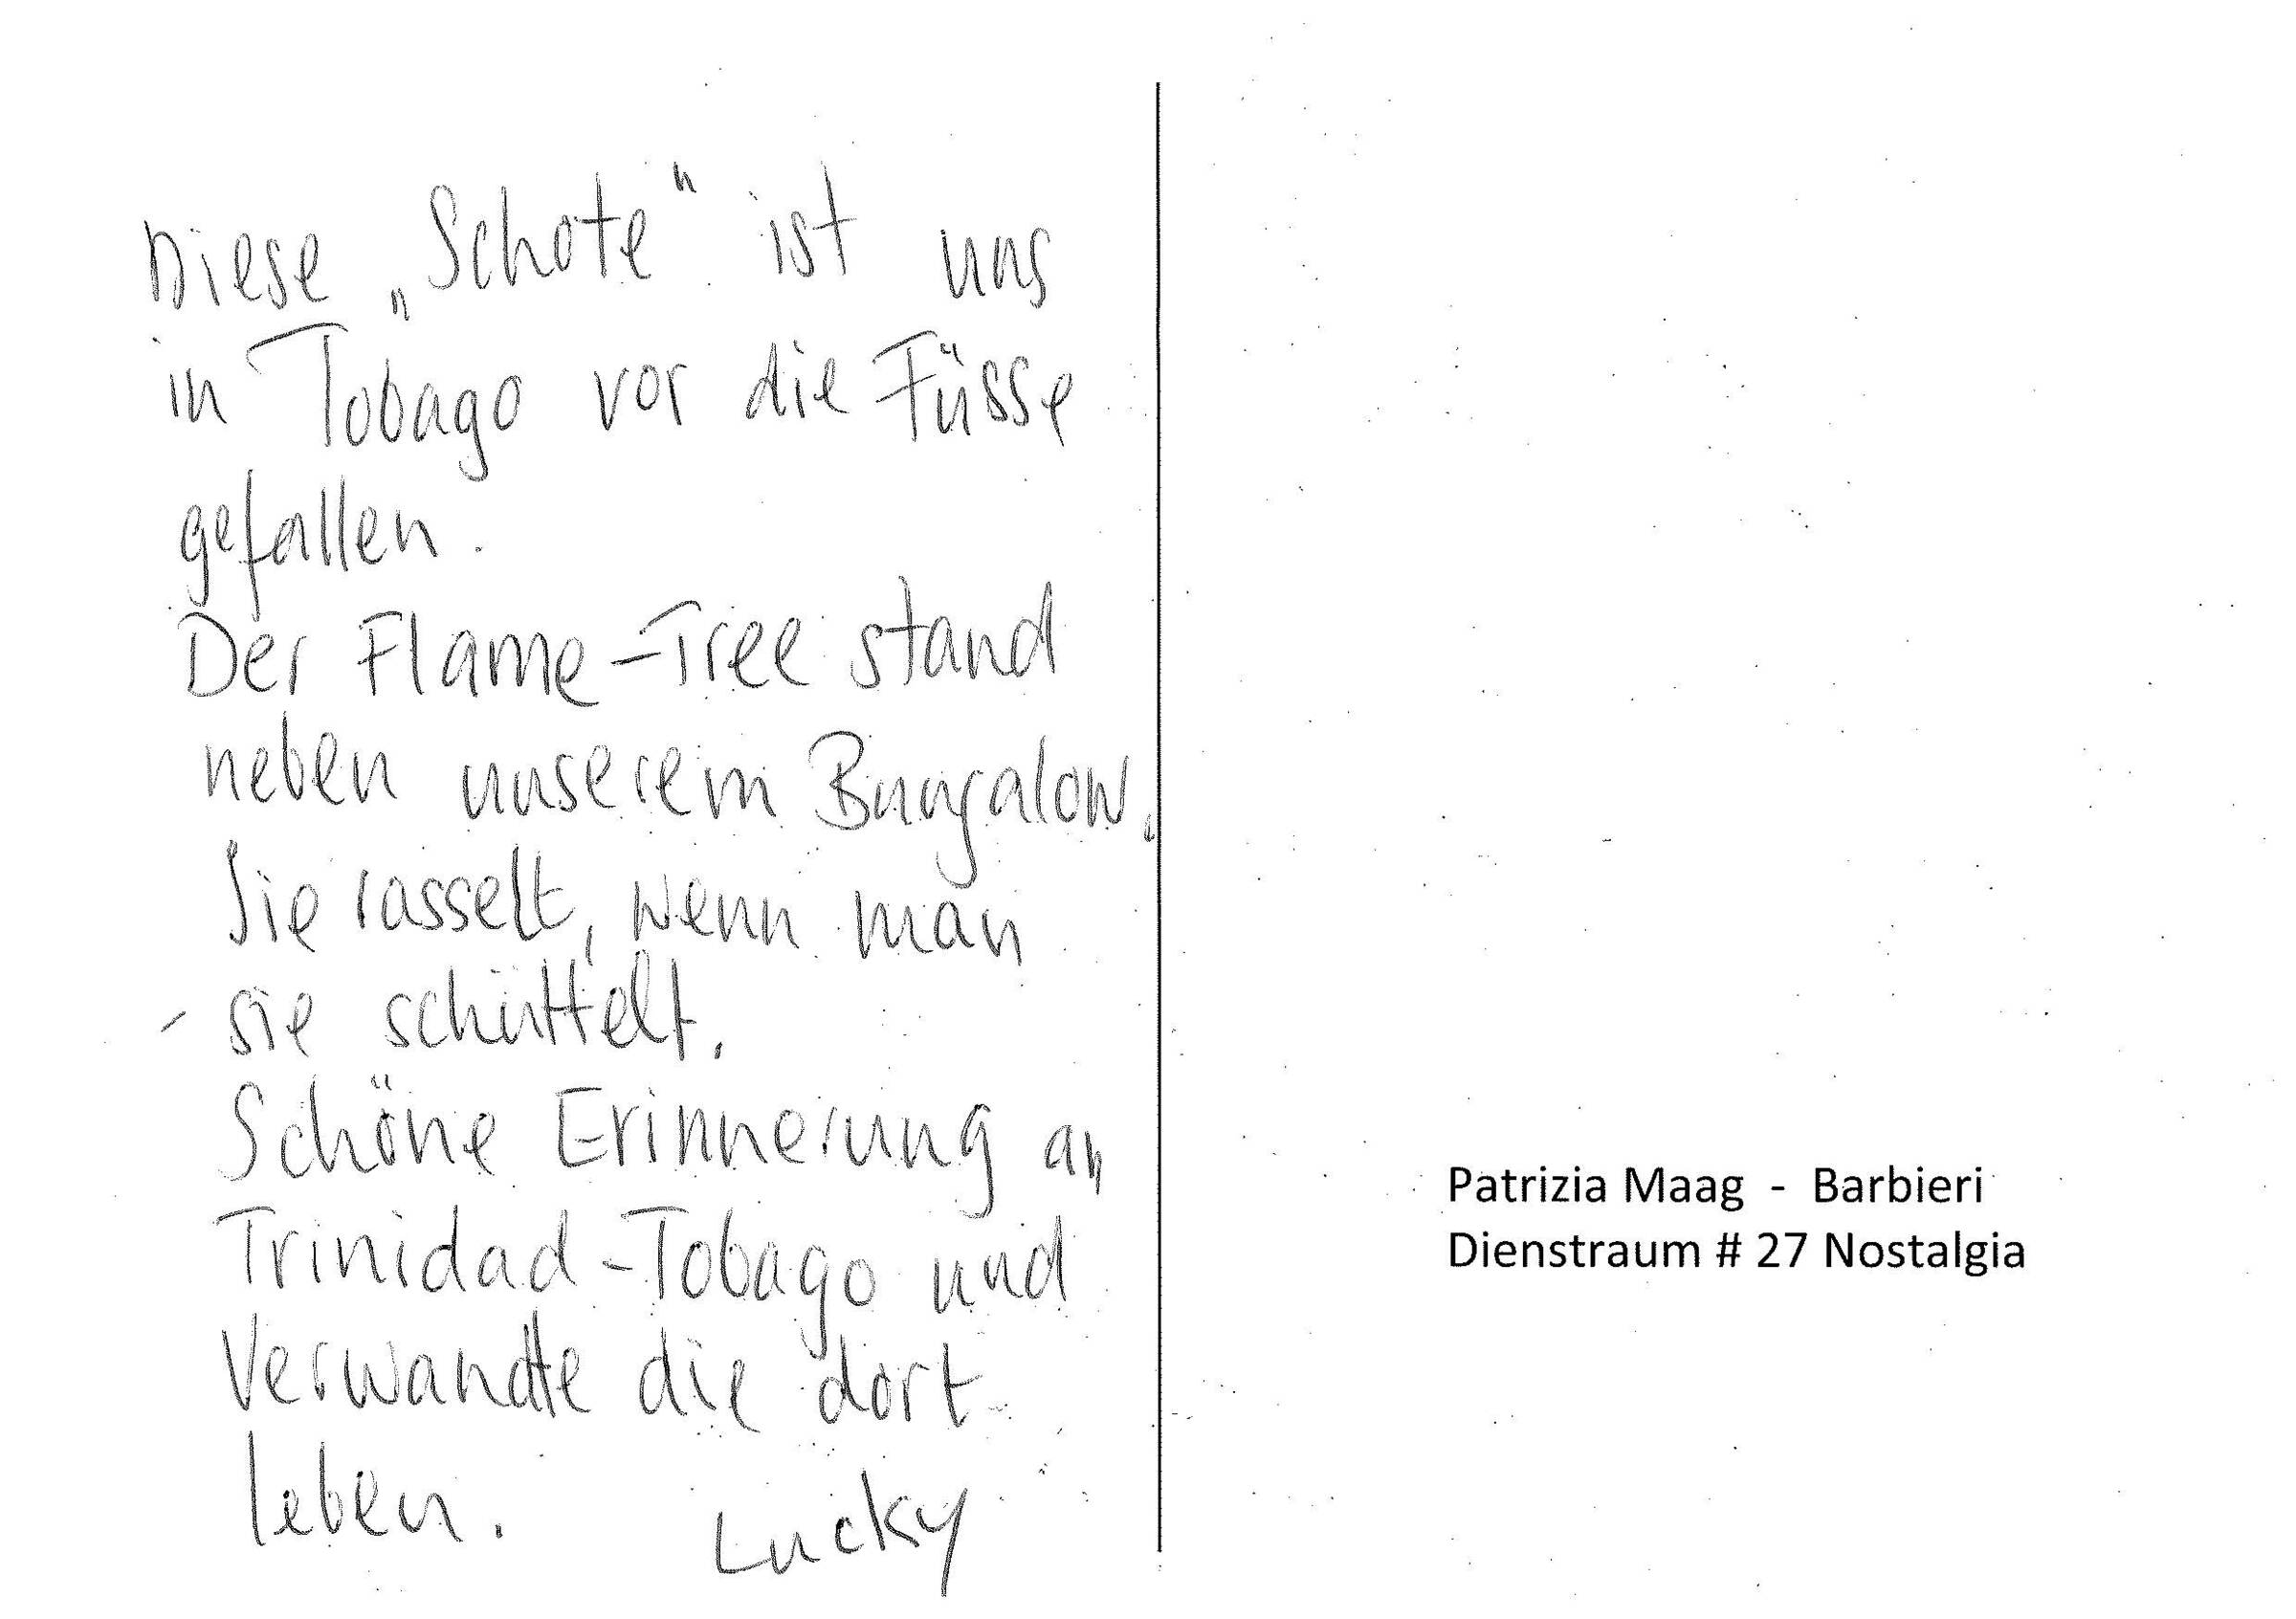 Diese „Schote" ist uns
in Tobago vor die Füsse
gefallen.
Der Flame-Tree stand
neben unserem Bungalow.
Sie rasselt, wenn man
sie schüttelt.
Schöne Erinnerung an
Trinidad-Tobago und
Verwandte die dort
leben. Lucky
Patrizia Maag - Barbieri
Dienstraum # 27 Nostalgia